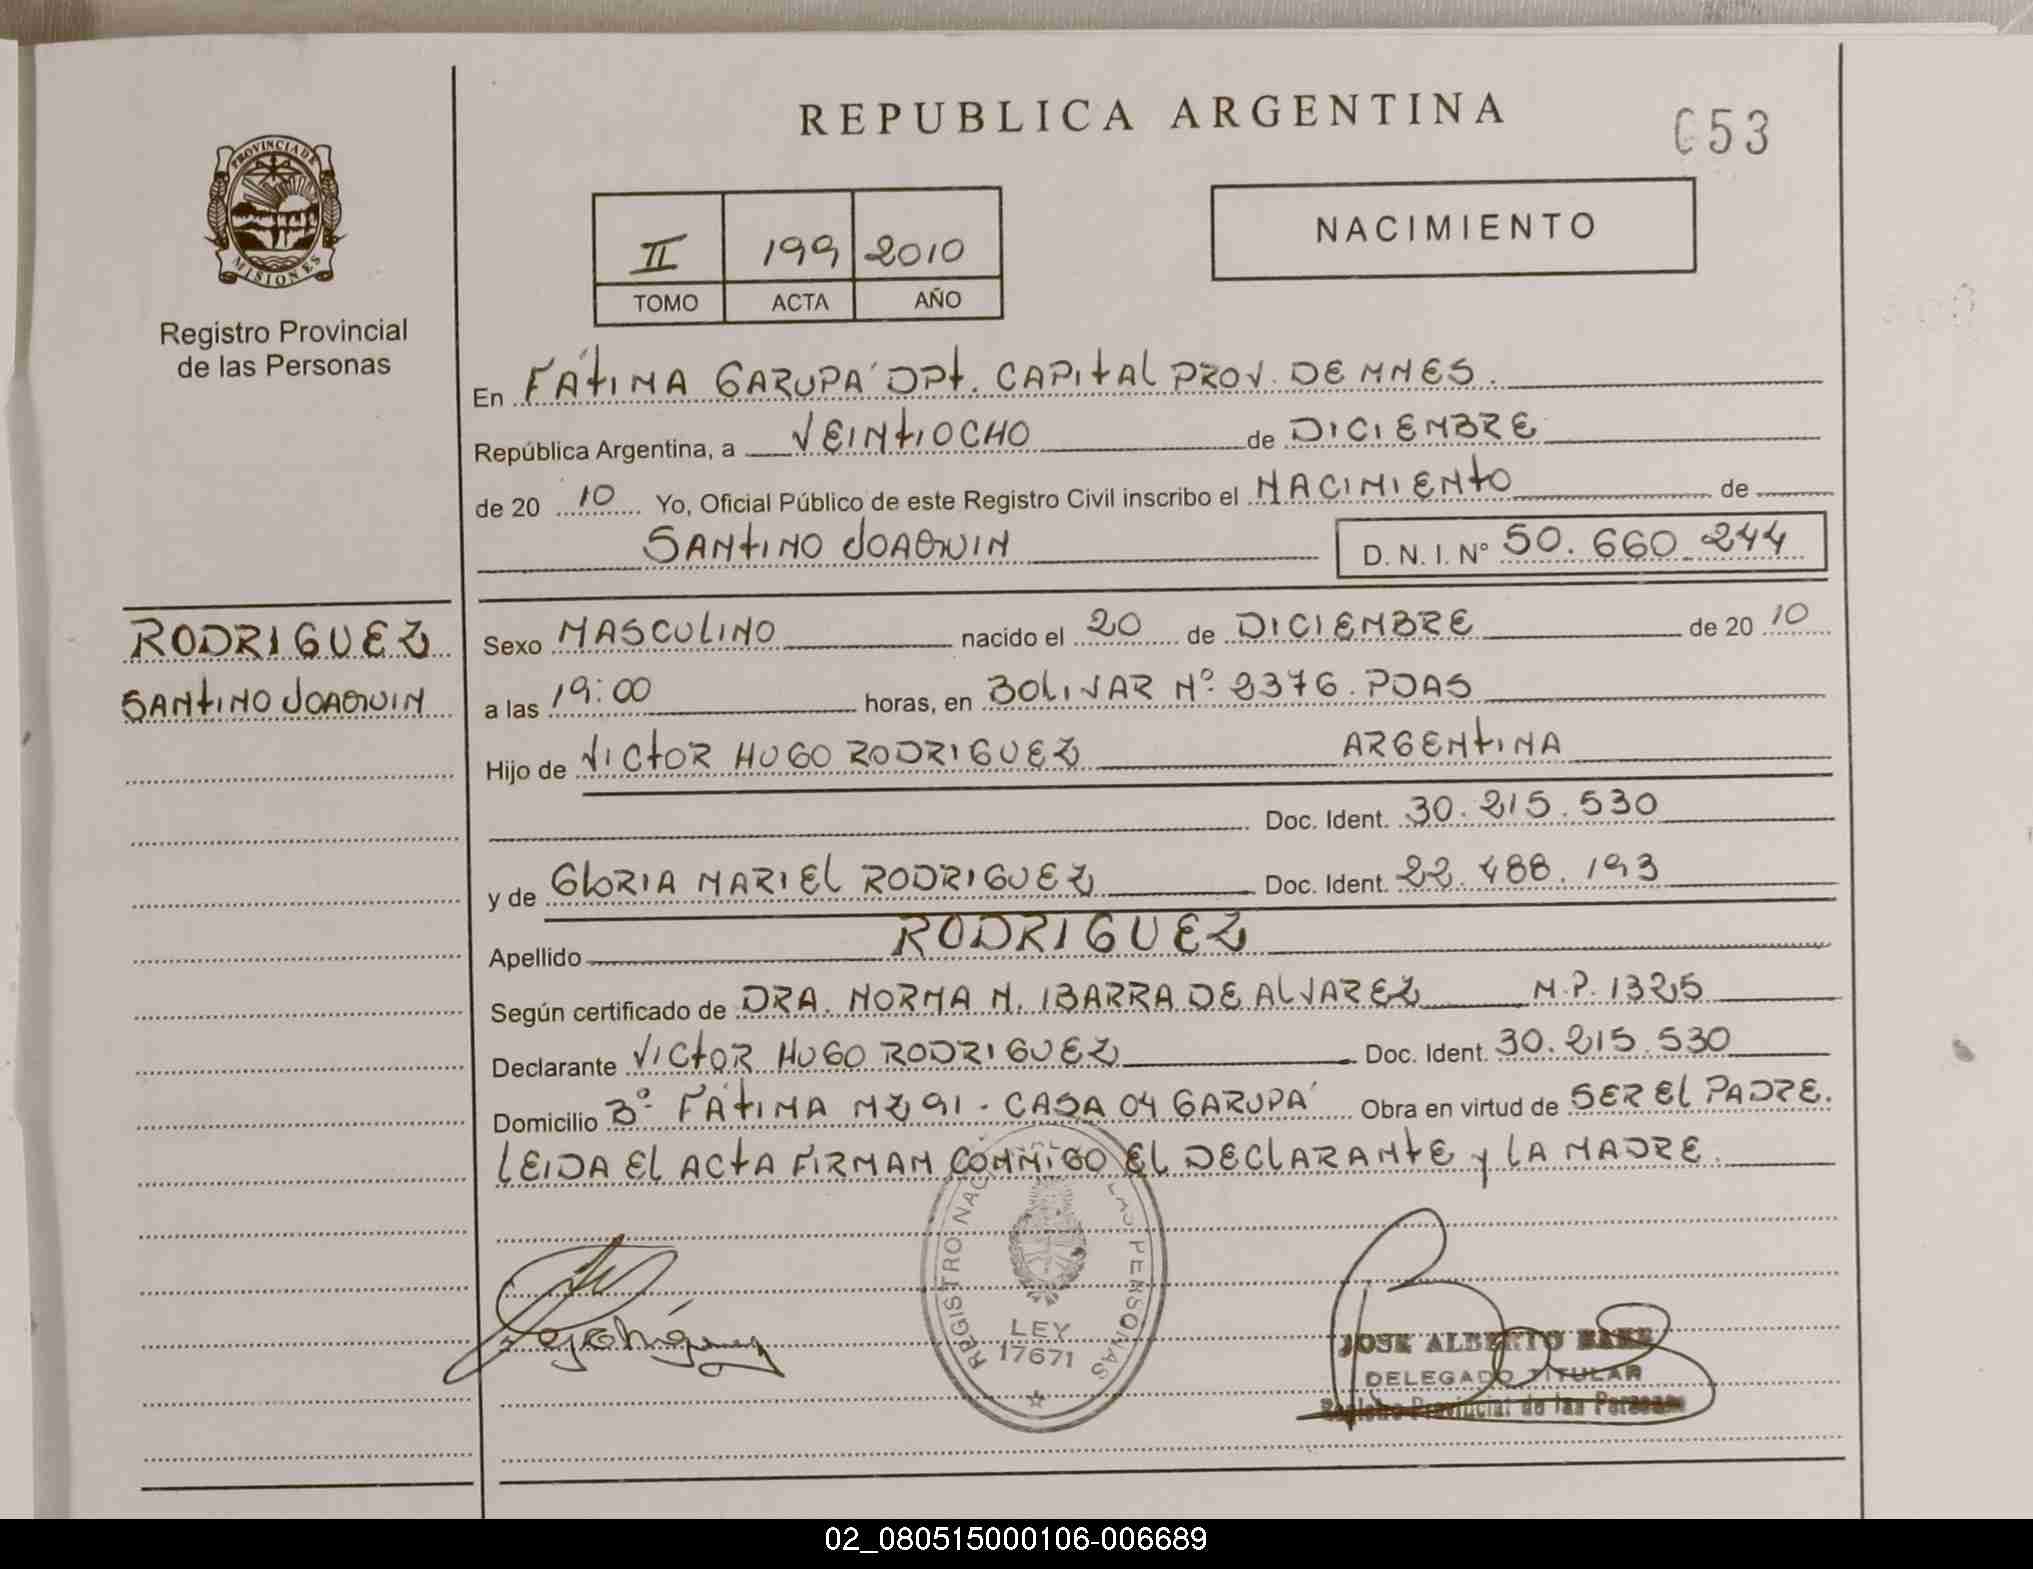 REPUBLICA ARGENTINA
053
PROVINCIA DE
MISIONES
Registro Provincial
de las Personas
II 199 2010
TOMO ACTA AÑO
NACIMIENTO
En FÁTIMA GARUPÁ DPT. CAPITAL PROV. DE MNES.
República Argentina, a VEINTIOCHO de DICIEMBRE
de 20 10 Yo, Oficial Público de este Registro Civil inscribo el NACIMIENTO de
SANTINO JOAQUIN D. N. I. Nº 50.660.244
RODRIGUEZ
SANTINO JOAQUIN
Sexo MASCULINO nacido el 20 de DICIEMBRE de 20 10
a las 19:00 horas, en BOLIVAR Nº 2376. PDAS
Hijo de VICTOR HUGO RODRIGUEZ ARGENTINA
Doc. Ident. 30.215.530
y de GLORIA MARIEL RODRIGUEZ Doc. Ident. 22.488.193
Apellido RODRIGUEZ
Según certificado de DRA. NORMA N. IBARRA DE ALVAREZ M.P. 1325
Declarante VICTOR HUGO RODRIGUEZ Doc. Ident. 30.215.530
Domicilio Bº FÁTIMA MZ 91 - CASA 04 GARUPÁ Obra en virtud de SER EL PADRE.
LEIDA EL ACTA FIRMAN CONMIGO EL DECLARANTE y LA MADRE.
REGISTRO NACIONAL LAS PERSONAS
LEY
17671
JOSE ALBERTO BAEZ
DELEGADO TITULAR
Registro Provincial de las Personas
02_080515000106-006689